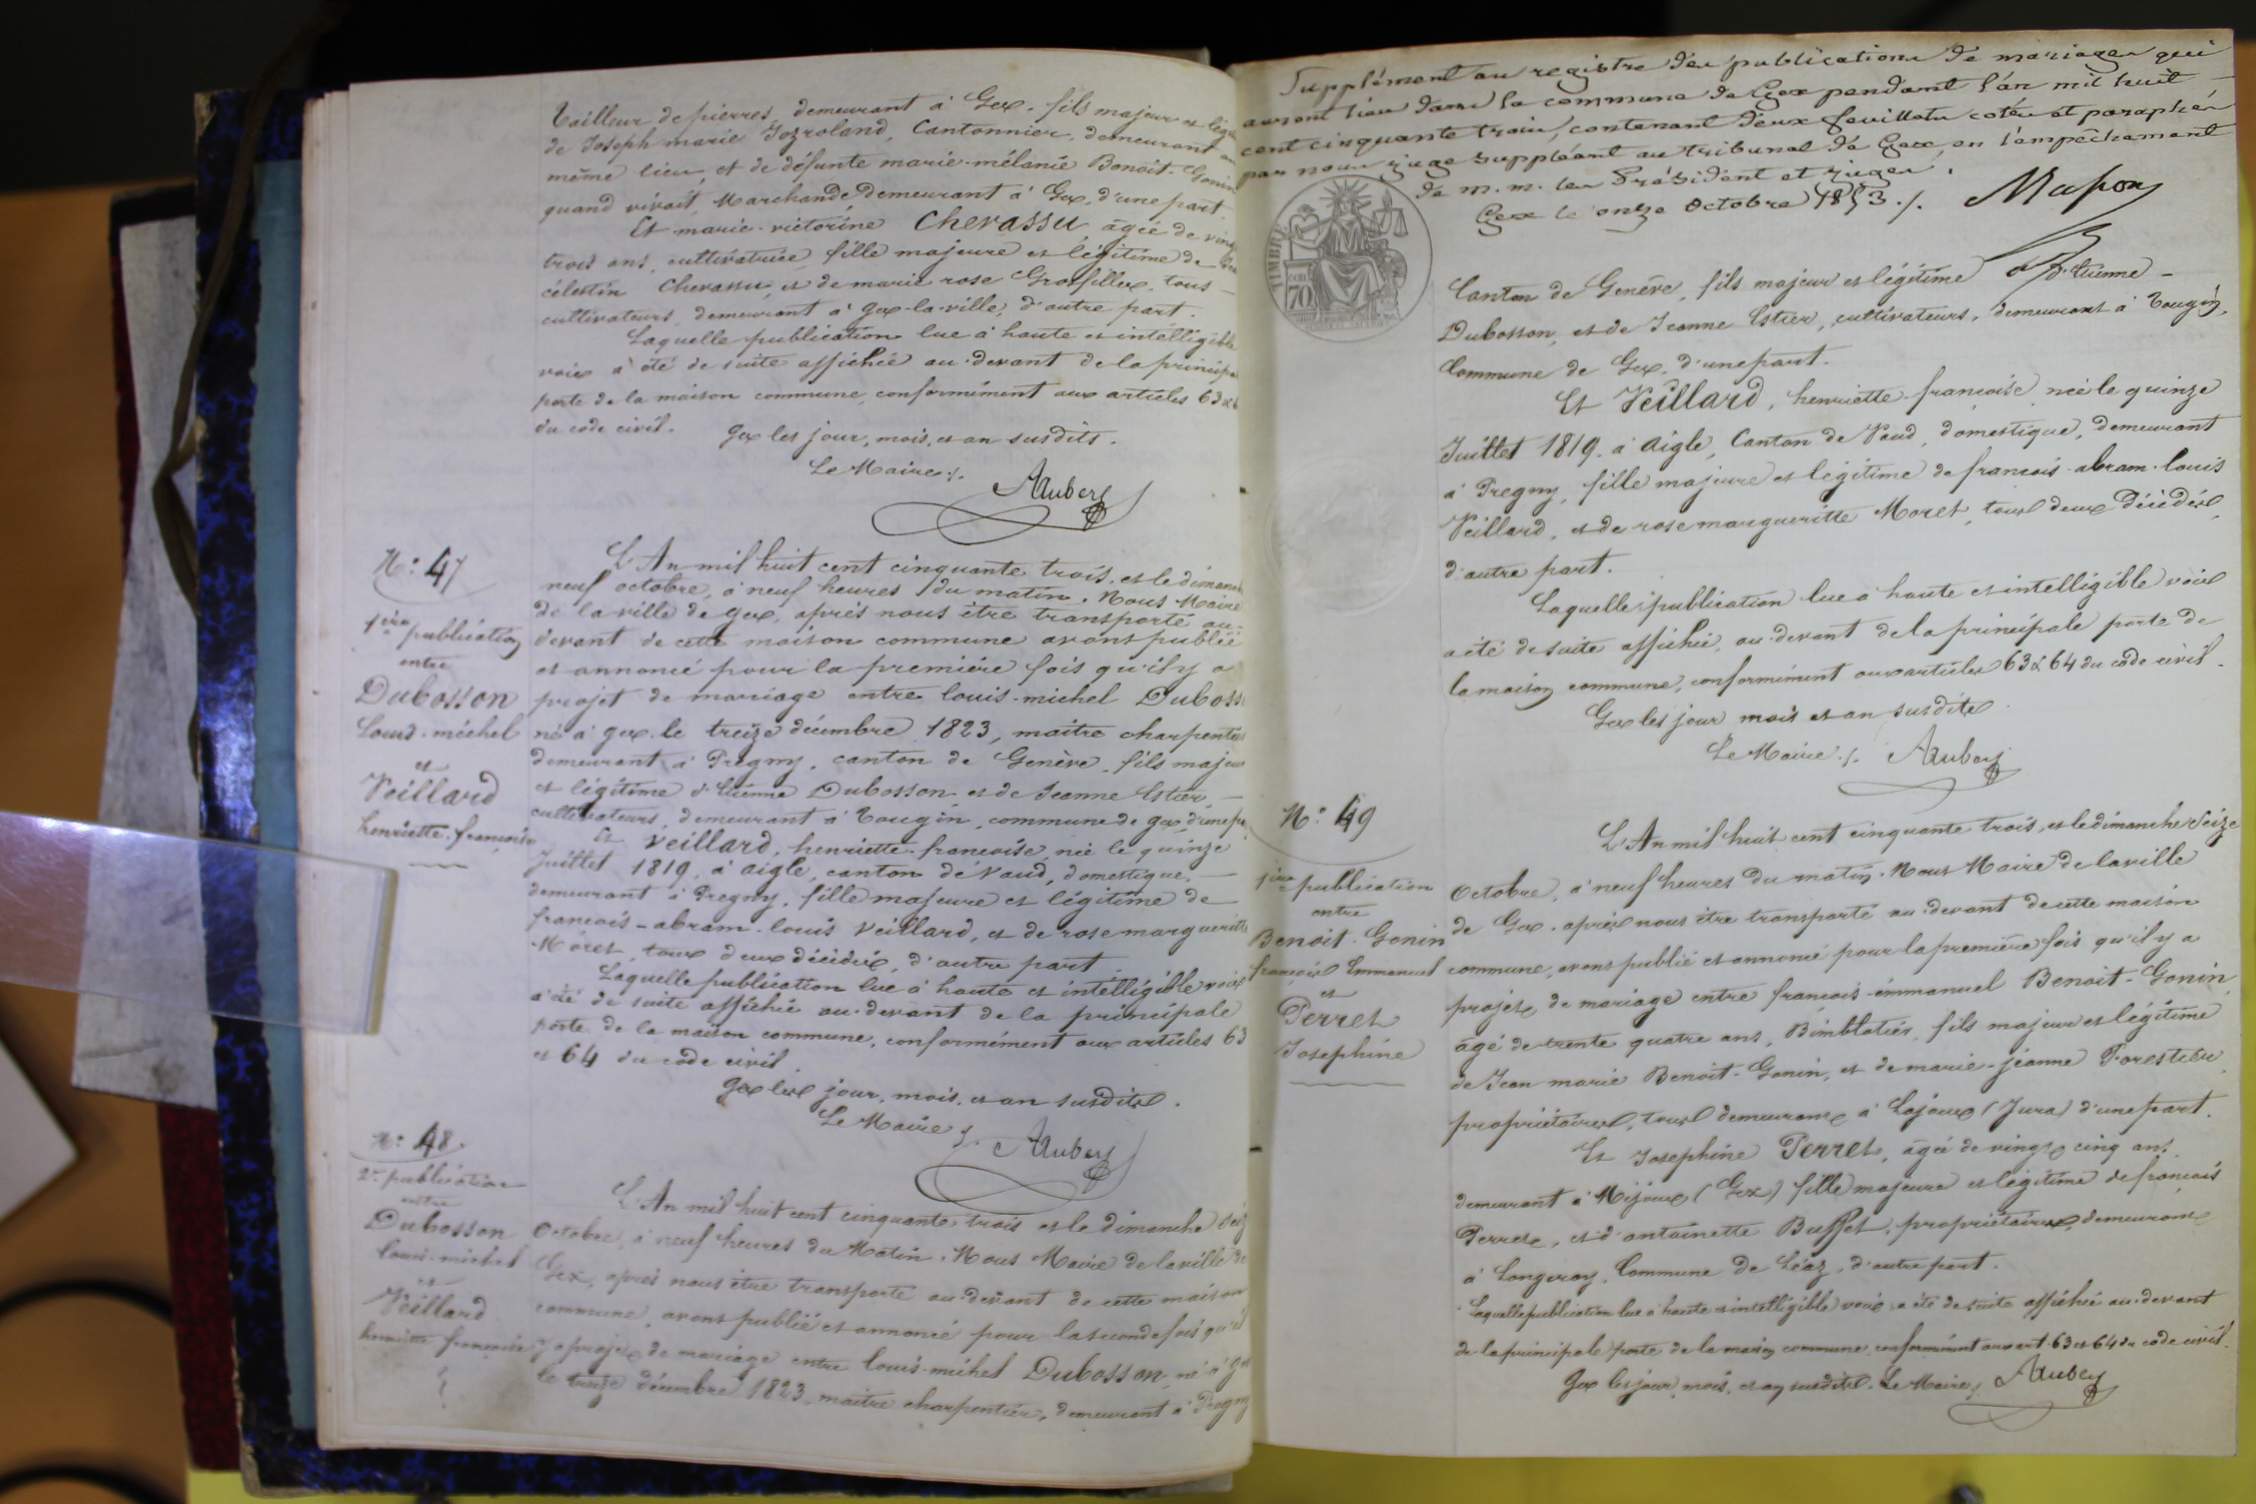 tailleur de pierres, demeurant à Gex, fils majeur et
de Joseph marie Jozroland, Cantonnier, demeurant au
même lieu, et de défunte marie-mélanie Benoit-Gonin
quand vivait, Marchande demeurant à Gex, d'une part.
Et marie-victorine Chevassu âgée de
trois ans, cultivatrice, fille majeure et légitime de
célestin Chevassu, et de marie rose Grosfillex, tous
cultivateurs, demeurant à Gex-la-ville, d'autre part.
Laquelle publication lue à haute et intelligible
voix a été de suite affichée au-devant de la
porte de la maison commune, conformément aux articles 63
du code civil.
Gex les jour, mois, et an susdits.
Le Maire
AAubery
N° 47
1ère publication
entre
Dubosson
Louis-michel
et
Veillard
henriette-francoise
L'An mil huit cent cinquante trois, et le
neuf octobre, à neuf heures du matin. Nous Maire
de la ville de gex, après nous être transporté au-
devant de cette maison commune avons publié
et annoncé pour la première fois qu'il y a
projet de mariage entre louis-michel
né à gex le treize décembre 1823, maître
demeurant à Pregny, canton de Genève, fils majeur
et légitime d'Etienne Dubosson, et de Jeanne Estier,
cultivateurs, demeurant à Tougin, commune de gex,
Et Veillard, henriette-francoise, née le quinze
Juillet 1819, à aigle, canton de Vaud, domestique,
demeurant à Pregny, fille majeure et légitime de
francois-abram-louis Veillard, et de rose margueritte
Moret, tous deux décédés, d'autre part
Laquelle publication lue à haute et intelligible voix
a été de suite affichée au-devant de la principale
porte de la maison commune, conformément aux articles 63
et 64 du code civil
Gex les jour, mois, et an susdits.
Le Maire
AAubery
N° 48.
2e publication
entre
Dubosson
louis-michel
et
Veillard
henriette francoise
L'An mil huit cent cinquante trois et le dimanche
Octobre, à neuf heures du Matin. Nous Maire de la ville de
Gex, après nous être transporté au-devant de cette maison
commune, avons publié et annoncé pour la seconde fois qu'il
y a projet de mariage entre louis-michel Dubosson, né à
le treize décembre 1823, maître charpentier, demeurant à Pregny
Supplément au registre des publications de mariages qui
auront lieu dans la commune de Gex pendant l'an mil huit
cent cinquante trois, contenant deux feuillets cotés et paraphés
par nous juge suppléant au tribunal de Gex, en l'empêchement
de m.m. les Président et juges.
Gex le onze Octobre 1853 ./.
TIMBRE
70
Canton de Genève, fils majeur et légitime d'Etienne
Dubosson, et de Jeanne Estier, cultivateurs, demeurant à Tougin,
Commune de Gex, d'une part.
Et Veillard, henriette-francoise, née le quinze
Juillet 1819, à Aigle, Canton de Vaud, domestique, demeurant
à Pregny, fille majeure et légitime de francois-abram-louis
Veillard, et de rose margueritte Moret, tous deux décédés,
d'autre part.
Laquelle publication lue à haute et intelligible voix
a été de suite affichée, au-devant de la principale porte de
la maison commune, conformément aux articles 63 & 64 du code civil.
Gex les jour mois et an susdits.
Le Maire ./. AAubery
N° 49
1ère publication
entre
Benoit-Gonin
francois Emmanuel
et
Perret
Josephine
L'An mil huit cent cinquante trois, et le dimanche Seize
Octobre, à neuf heures du matin. Nous Maire de la ville
de Gex, après nous être transporté au-devant de cette maison
commune, avons publié et annoncé pour la première fois qu'il y a
projet de mariage entre francois-émmanuel Benoit-Gonin,
âgé de trente quatre ans, Bimblotier, fils majeur et légitime
de Jean marie Benoit-Gonin, et de marie-jeanne Forestier,
propriétaires, tous demeurant à Lajoux (Jura) d'une part.
Et Josephine Perret, âgée de vingt cinq ans,
demeurant à Mijoux (Gex) fille majeure et légitime de francois
Perret, et d'antoinette Buffet, propriétaires, demeurant
à Longeray, Commune de Léaz, d'autre part.
Laquelle publication lue à haute et intelligible voix a été de suite affichée au-devant
de la principale porte de la maison commune, conformément aux art. 63 et 64 du code civil.
Gex les jour, mois, et an susdits. Le Maire, AAubery